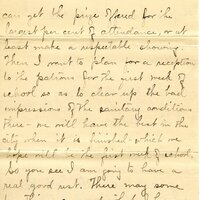 can get the prize offered for the
largest per cent of attendance, or at
least make a respectable showing.
Then I want to plan for a reception
to the patrons for the first week of
school so as to clear up the bad
impressions of the sanitary conditions
there - we will have the best in the
city when it is finished - which we
hope will be the first week of school.
So you see I am going to have a
real good rest. There may some